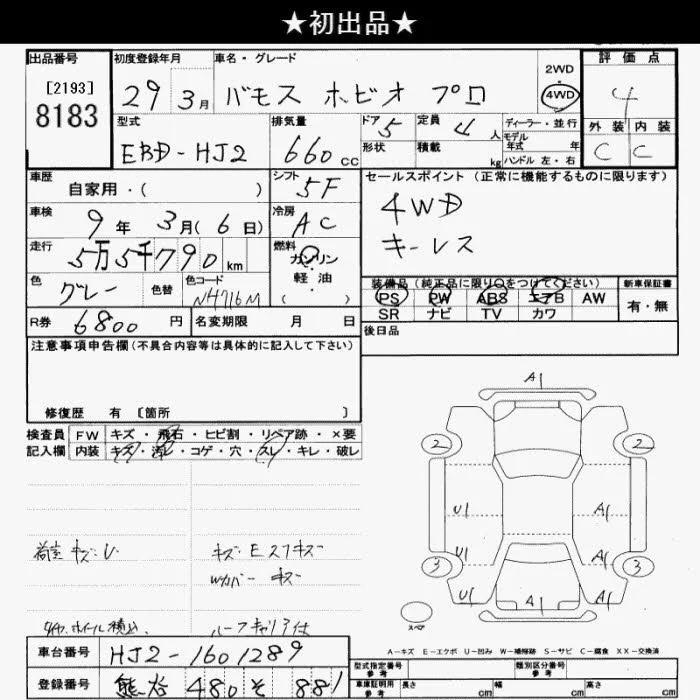 ★初出品★
出品番号
[2193]
8183
初度登録年月
29 3月
車名・グレード
バモス ホビオ プロ
2WD
・
4WD
評価点
4
外装 内装
C C
型式
EBD-HJ2
排気量
660 cc
ドア 5
形状
定員 4 人
積載 kg
ディーラー・並行
モデル
年式 年
ハンドル 左・右
車歴
自家用・( )
シフト
5F
車検
9年 3月(6日)
冷房
AC
走行
5万5千790 km
燃料
ガソリン
軽油
( )
色
グレー
色替
色コード
NH716M
R券 6800 円
名変期限 月 日
セールスポイント (正常に機能するものに限ります)
4WD
キーレス
装備品 (純正品に限り○をつけてください)
PS PW ABS エアB AW
SR ナビ TV カワ
新車保証書
有・無
後日品
注意事項申告欄(不具合内容等は具体的に記入して下さい)
修復歴 有 [箇所 ]
検査員 FW キズ・飛石・ヒビ割・リペア跡・×要
記入欄 内装 キズ・汚レ・コゲ・穴・スレ・キレ・破レ
荷室 キズ・U
キズ・Eスリキズ
Wカバー キズ
タイヤ、ホイール積込、
ルーフキャリア付
A1
2 2
U1 A1
U1 A1
3 3
U1 A1 A1
スペア
A-キズ E-エクボ U-凹み W-補修跡 S-サビ C-腐食 XX-交換済
車台番号 HJ2-1601289
登録番号 熊谷 480 そ 881
型式指定番号
参考
類別区分番号
参考
車庫証明用
参考
長さ cm 幅 cm 高さ cm